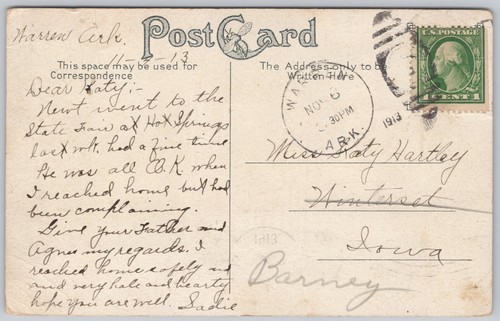 Warren Ark.
11-6-13
Post Card
This space may be used for
Correspondence
The Address only to be
Written Here
Dear Katy:-
Newt went to the
State Fair at Hot Springs
last wk. had a fine time
He was all O.K. when
I reached home but had
been complaining.
Give your Father and
Agnes my regards. I
reached home safely and
and very hale and hearty
hope you are well. Sadie
WARREN
NOV 6
30PM
1913
ARK.
1 CENT 1
Miss Katy Hartley
Winterset
Iowa
Barney